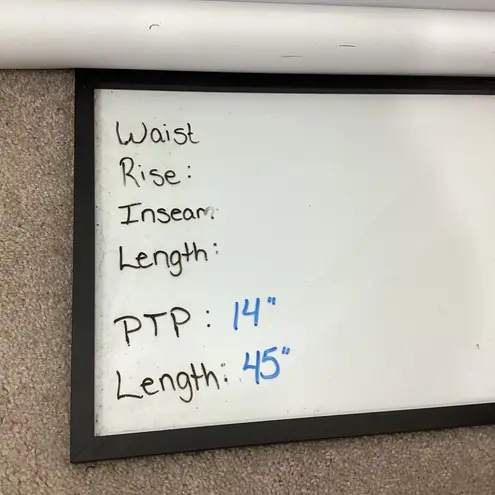 Waist
Rise:
Inseam
Length:
PTP: 14"
Length: 45"